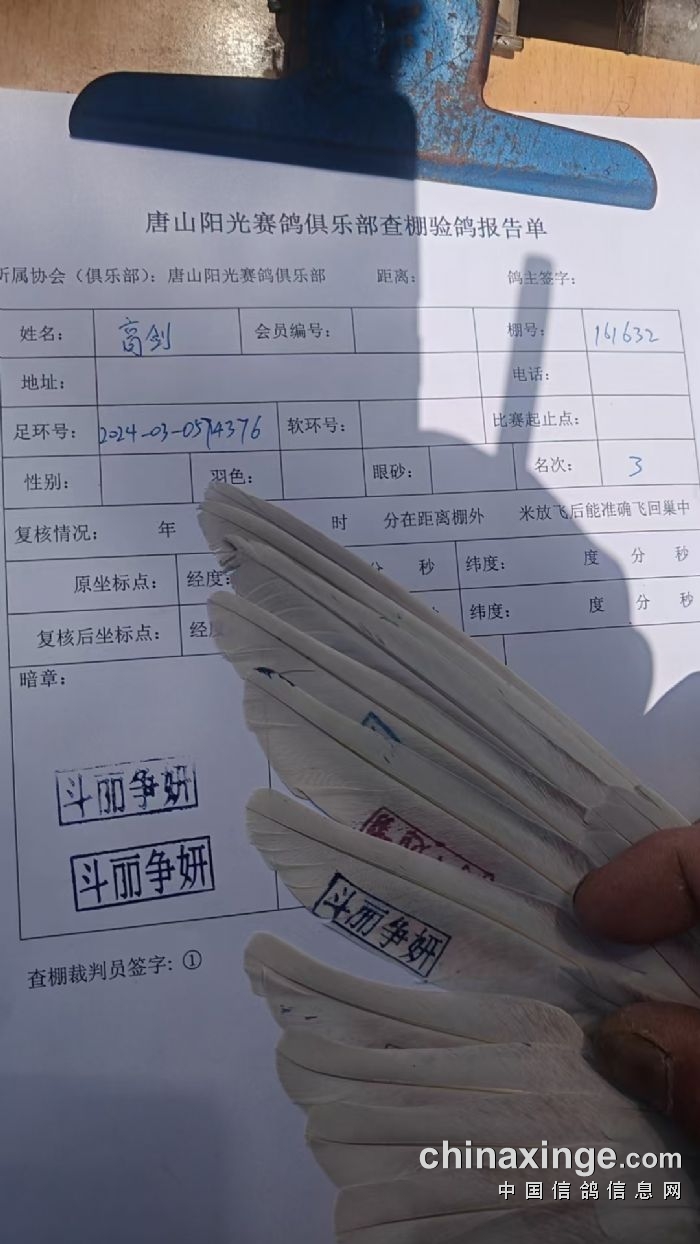 唐山阳光赛鸽俱乐部查棚验鸽报告单
所属协会（俱乐部）：唐山阳光赛鸽俱乐部 距离： 鸽主签字：
姓名： 高剑 会员编号： 棚号： 161632
地址： 电话：
足环号： 2024-03-0574376 软环号： 比赛起止点：
性别： 羽色： 眼砂： 名次： 3
复核情况： 年 时 分在距离棚外 米放飞后能准确飞回巢中
原坐标点： 经度： 分 秒 纬度： 度 分 秒
复核后坐标点： 经度 纬度： 度 分 秒
暗章：
斗丽争妍
斗丽争妍
斗丽争妍
查棚裁判员签字：①
chinaxinge.com
中国信鸽信息网